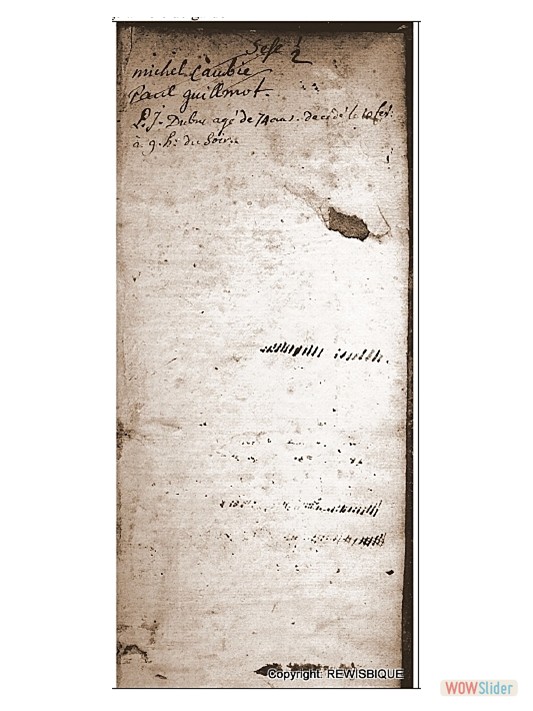 Sese 2
michel Caubie
Paul guillmot.
P. J. Dubu agé de 74 ans. decedé le 10 fev.
à 9. h. du Soir.
Copyright: REWISBIQUE
WOWSlider